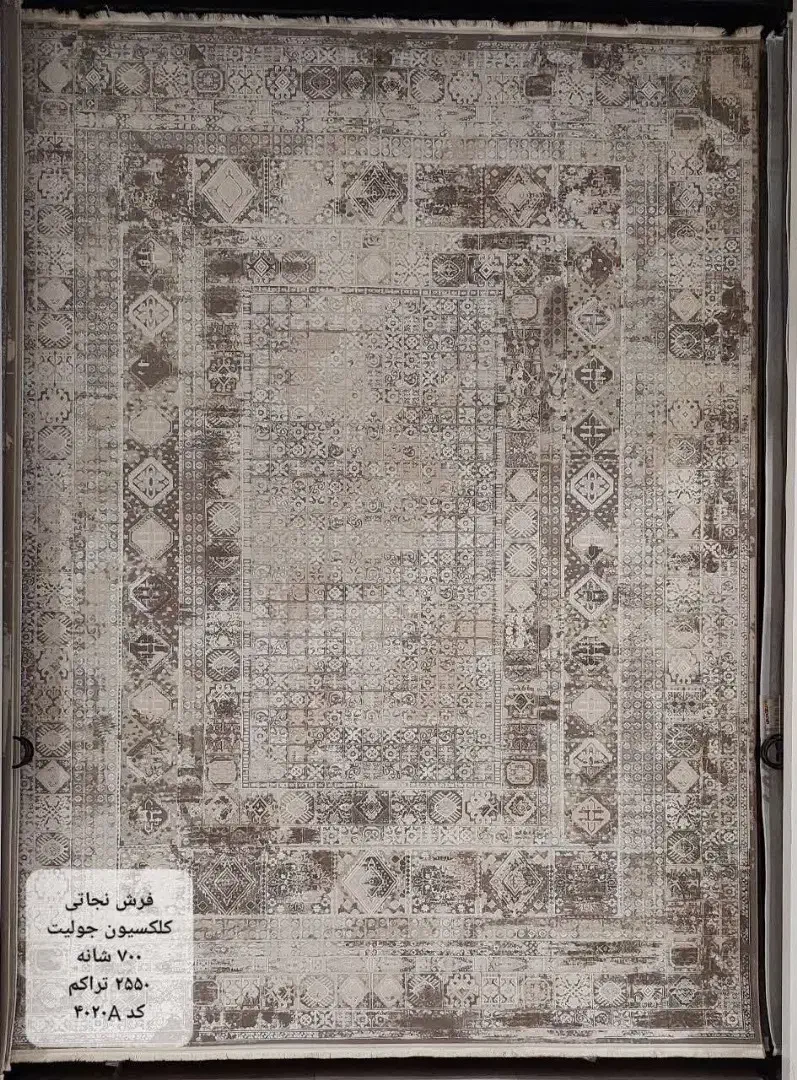 فرش نجاتی
کلکسیون جولیت
۷۰۰ شانه
۲۵۵۰ تراکم
کد ۴۰۲۰A